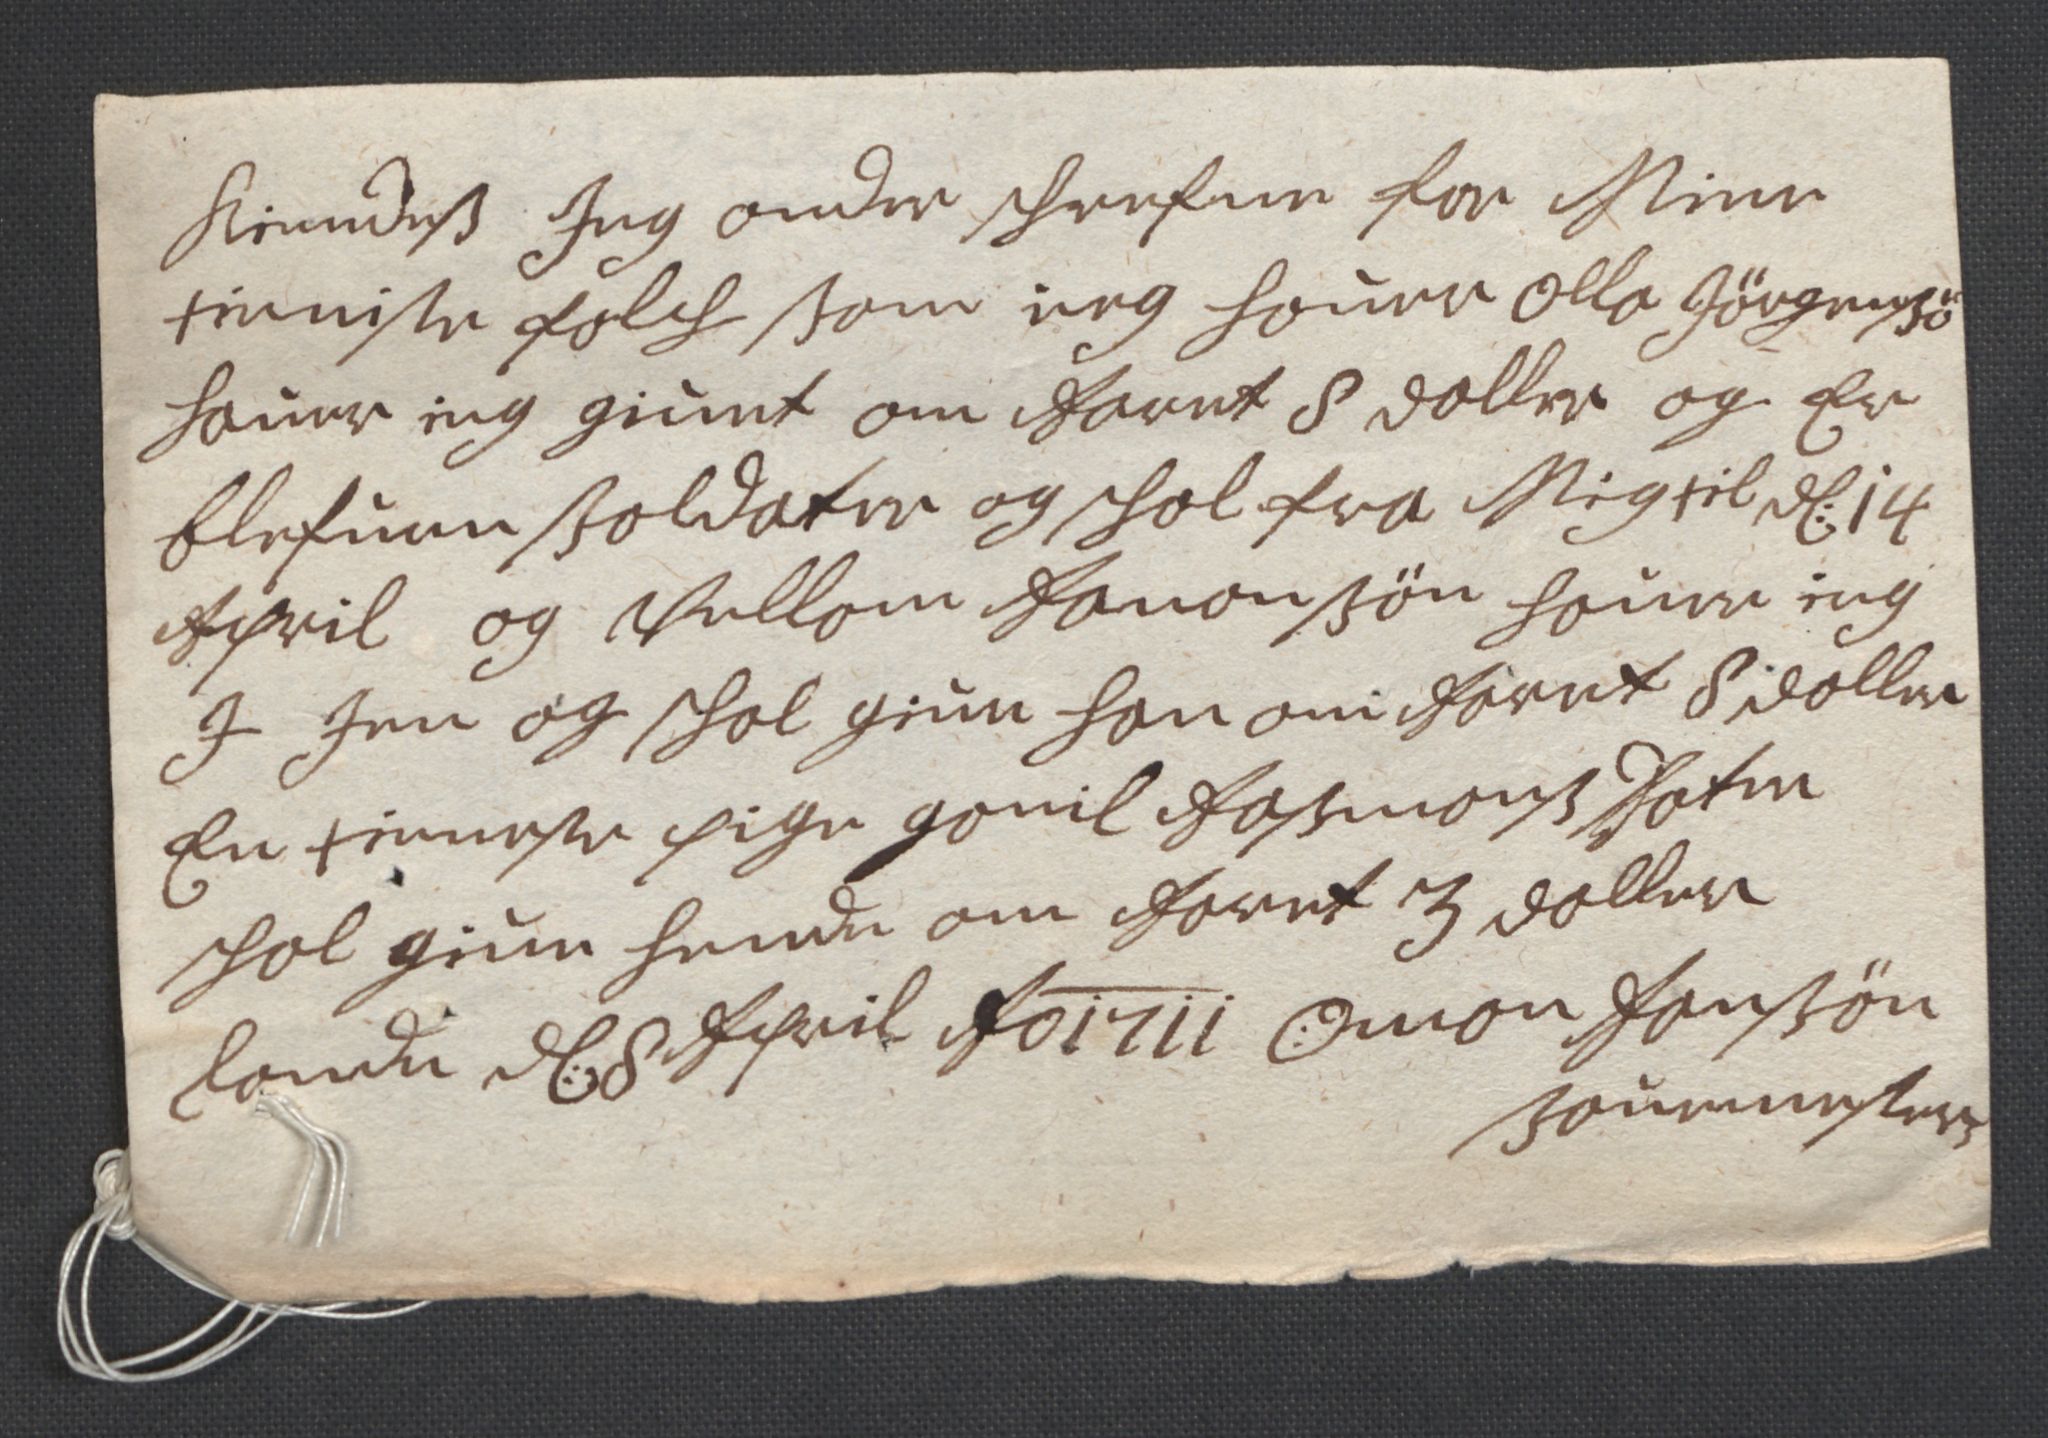 Kiendeß Jeg onder schrefne for Mine
tieniste folch som ieg hauer Olla Jörgensö
hauer ieg giuet om Aaret 8 daller og Er
blefuen soldater og schal fra Mig til d: 14
April og Vellom Aanonsön hauer ieg
I Jen og schal giue han om Aaret 8 daller
En tieneste pige gonil Aasmons Dater
schal giue hende om Aaret 3 daller
Lande d: 8 April Ao 1711 Omon Jansön